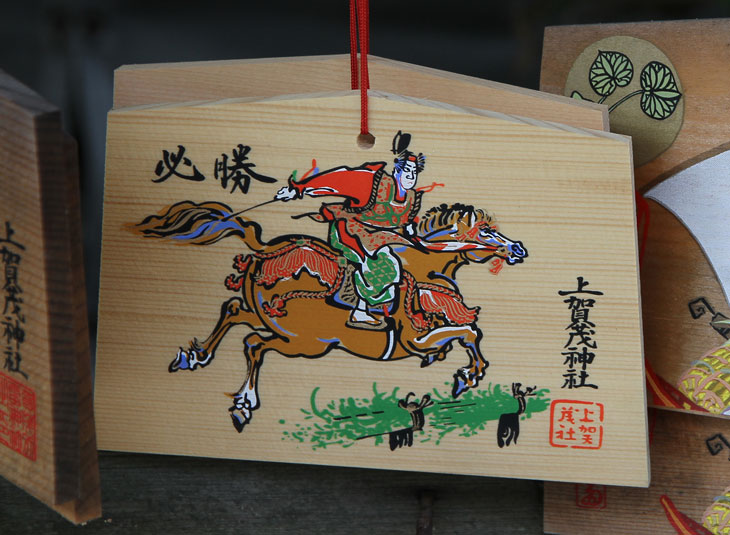 必勝
上賀茂神社
上加茂社
上賀茂神社